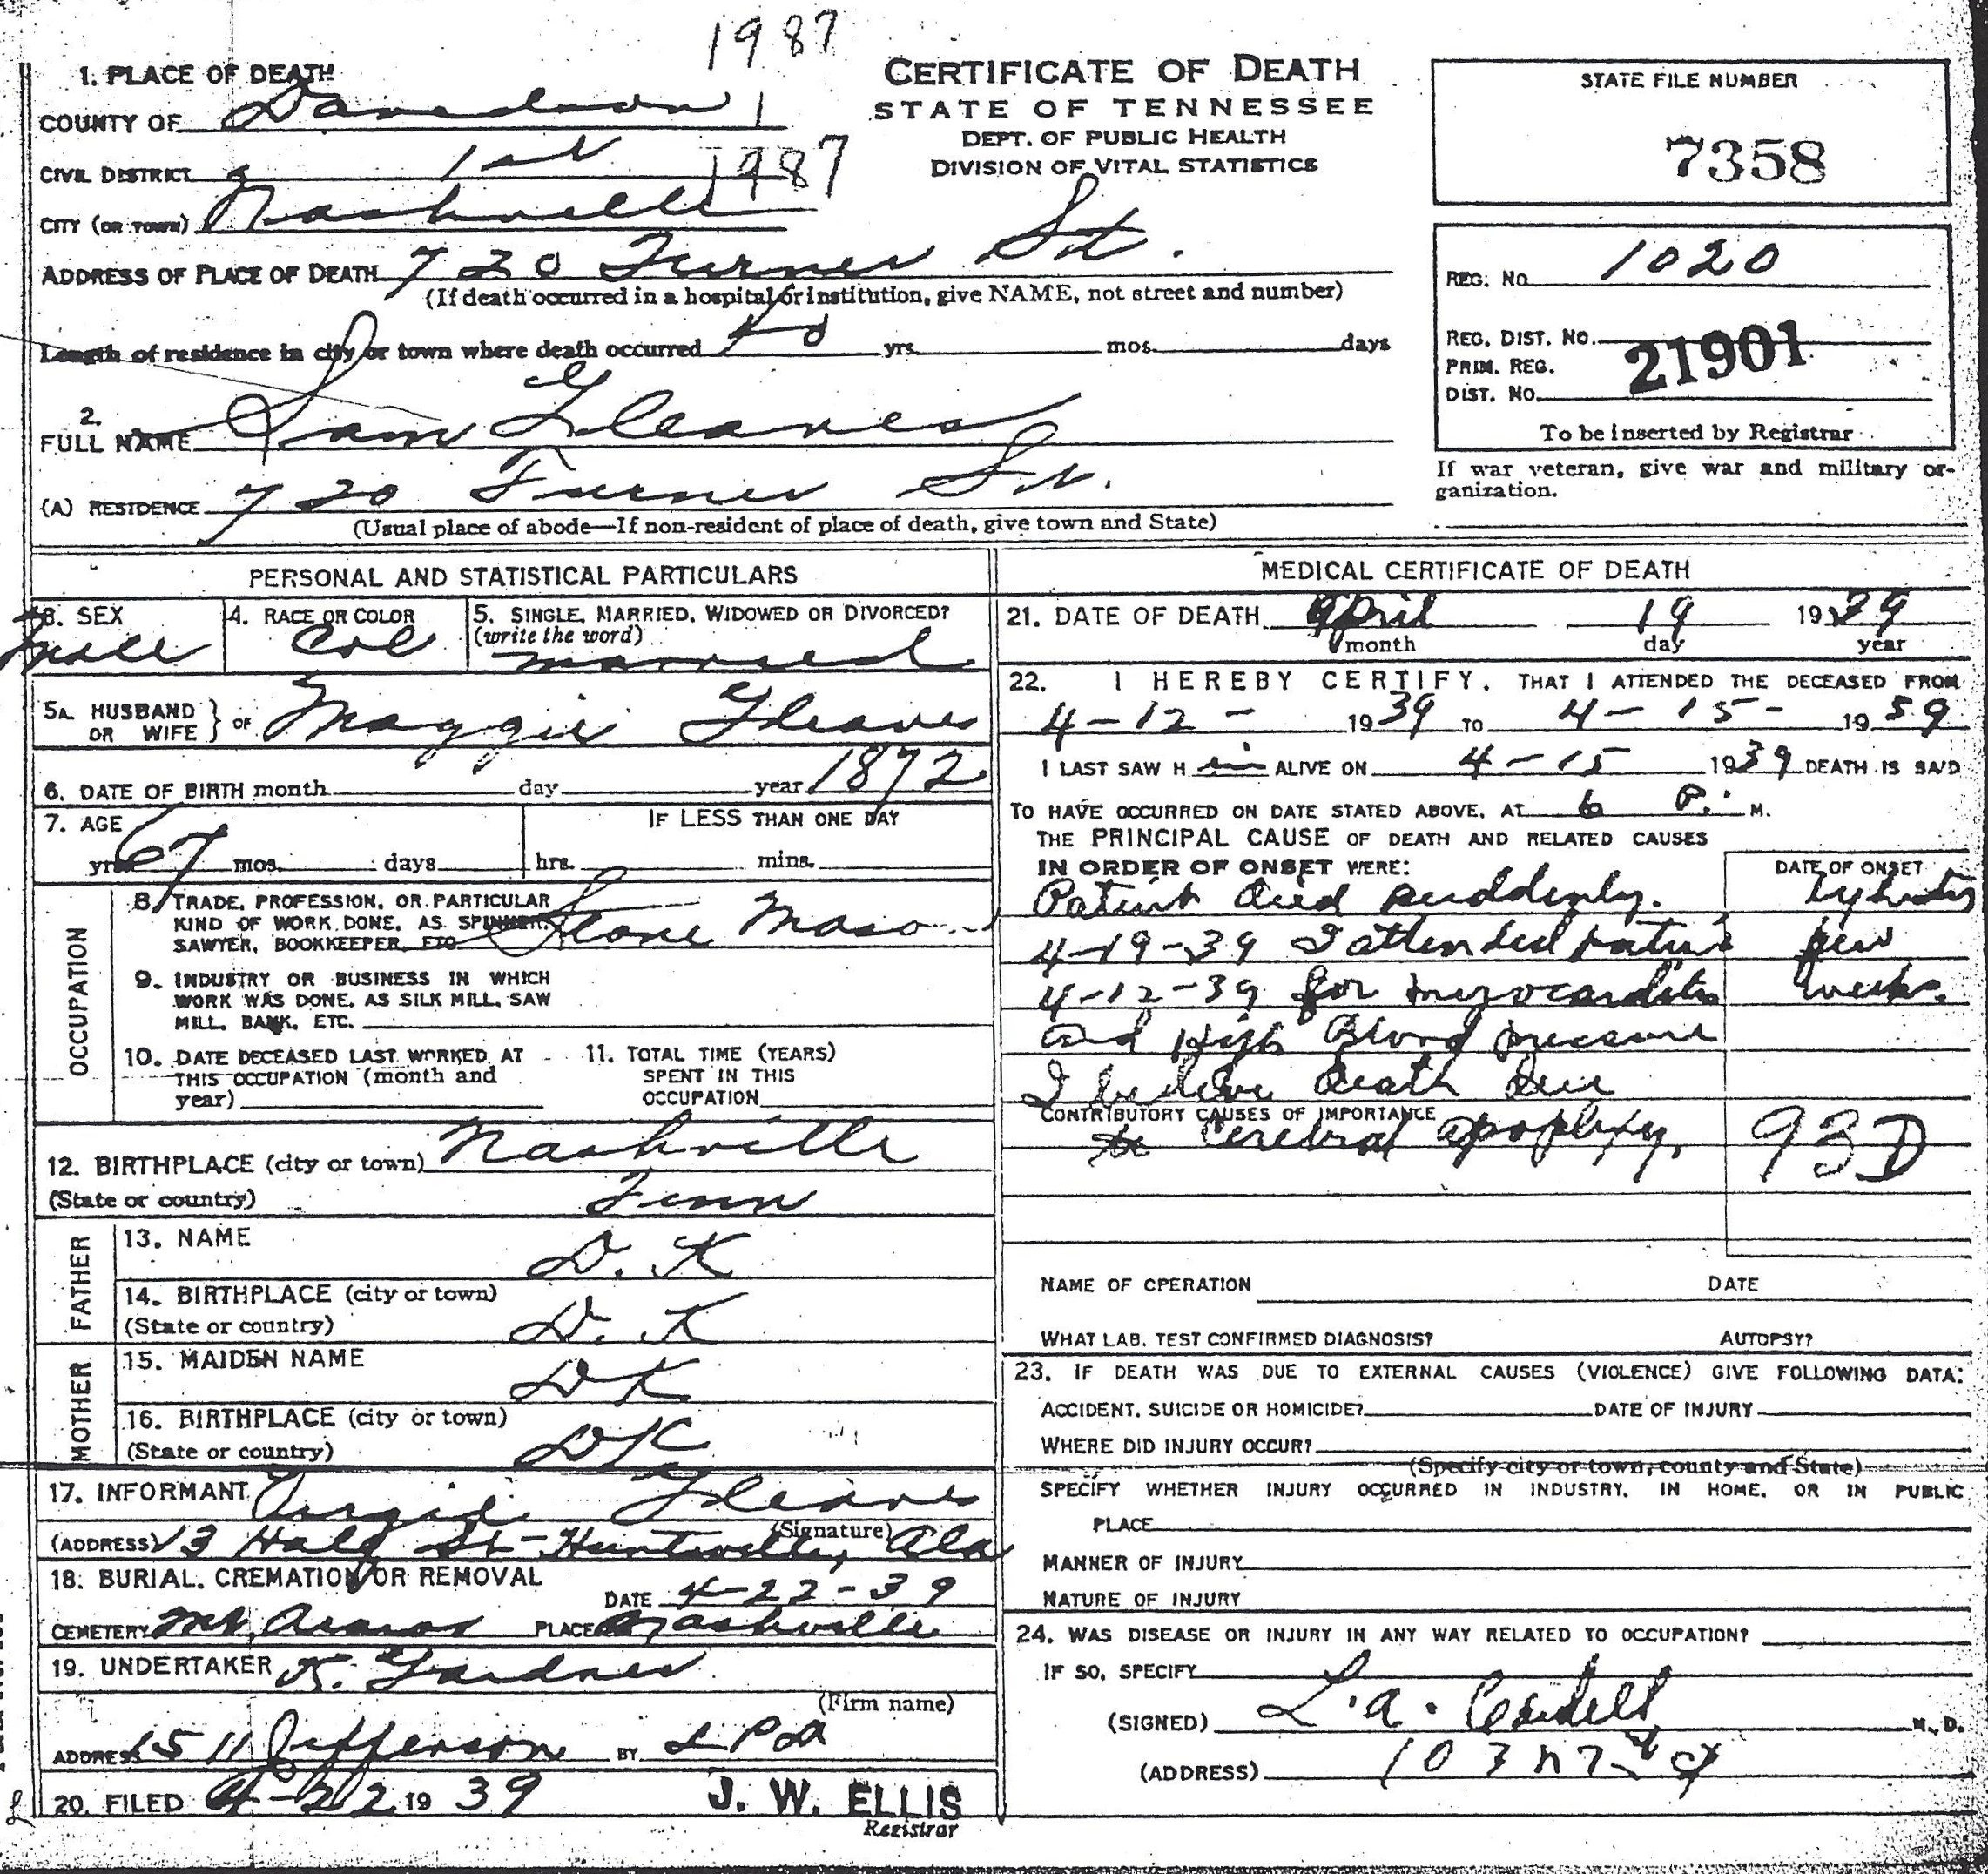 1987
1. PLACE OF DEATH
COUNTY OF Davidson
CIVIL DISTRICT 1st
1987
CITY (OR TOWN) Nashville
CERTIFICATE OF DEATH
STATE OF TENNESSEE
DEPT. OF PUBLIC HEALTH
DIVISION OF VITAL STATISTICS
STATE FILE NUMBER
7358
ADDRESS OF PLACE OF DEATH 720 Turner St.
(If death occurred in a hospital or institution, give NAME, not street and number)
Length of residence in city or town where death occurred yrs. mos. days
REG. NO. 1020
REG. DIST. NO.
PRIM. REG.
DIST. NO. 21901
To be inserted by Registrar
2.
FULL NAME Sam Gleaves
(A) RESIDENCE 720 Turner St.
(Usual place of abode—If non-resident of place of death, give town and State)
If war veteran, give war and military or-
ganization.
PERSONAL AND STATISTICAL PARTICULARS
3. SEX
male
4. RACE OR COLOR
Col
5. SINGLE, MARRIED, WIDOWED OR DIVORCED?
(write the word)
married
5A. HUSBAND
OR WIFE } OF Maggie Gleaves
6. DATE OF BIRTH month day year 1872
7. AGE
yrs. 67 mos. days
IF LESS THAN ONE DAY
hrs. mins.
OCCUPATION
8. TRADE, PROFESSION, OR PARTICULAR
KIND OF WORK DONE, AS SPINNER,
SAWYER, BOOKKEEPER, ETC. Stone Mason
9. INDUSTRY OR BUSINESS IN WHICH
WORK WAS DONE, AS SILK MILL, SAW
MILL, BANK, ETC.
10. DATE DECEASED LAST WORKED AT
THIS OCCUPATION (month and
year)
11. TOTAL TIME (YEARS)
SPENT IN THIS
OCCUPATION
12. BIRTHPLACE (city or town) Nashville
(State or country) Tenn
FATHER
13. NAME D. K
14. BIRTHPLACE (city or town)
(State or country) D. K
MOTHER
15. MAIDEN NAME DK
16. BIRTHPLACE (city or town)
(State or country) DK
17. INFORMANT Gleaves
(Signature)
(ADDRESS) St Huntsville, Ala
18. BURIAL, CREMATION OR REMOVAL
DATE 4-22-39
CEMETERY Mt. Ararat PLACE Nashville
19. UNDERTAKER K. Gardner
(Firm name)
ADDRESS 1511 Jefferson BY
20. FILED 4-22 1939 J. W. ELLIS
Registrar
MEDICAL CERTIFICATE OF DEATH
21. DATE OF DEATH April 19 1939
month day year
22. I HEREBY CERTIFY, THAT I ATTENDED THE DECEASED FROM
4-12- 1939 TO 4-15- 1939
I LAST SAW H im ALIVE ON 4-15 1939 DEATH IS SAID
TO HAVE OCCURRED ON DATE STATED ABOVE, AT 6 P. M.
THE PRINCIPAL CAUSE OF DEATH AND RELATED CAUSES
IN ORDER OF ONSET WERE:
DATE OF ONSET
Patient died suddenly.
4-19-39 I attended patient few
4-12-39 for myocarditis weeks.
and High Blood pressure
I believe death due
CONTRIBUTORY CAUSES OF IMPORTANCE
to Cerebral apoplexy, 93D
NAME OF OPERATION DATE
WHAT LAB. TEST CONFIRMED DIAGNOSIS? AUTOPSY?
23. IF DEATH WAS DUE TO EXTERNAL CAUSES (VIOLENCE) GIVE FOLLOWING DATA:
ACCIDENT, SUICIDE OR HOMICIDE? DATE OF INJURY
WHERE DID INJURY OCCUR?
(Specify city or town, county and State)
SPECIFY WHETHER INJURY OCCURRED IN INDUSTRY, IN HOME, OR IN PUBLIC
PLACE
MANNER OF INJURY
NATURE OF INJURY
24. WAS DISEASE OR INJURY IN ANY WAY RELATED TO OCCUPATION?
IF SO, SPECIFY
(SIGNED) L. A. M. D.
(ADDRESS)